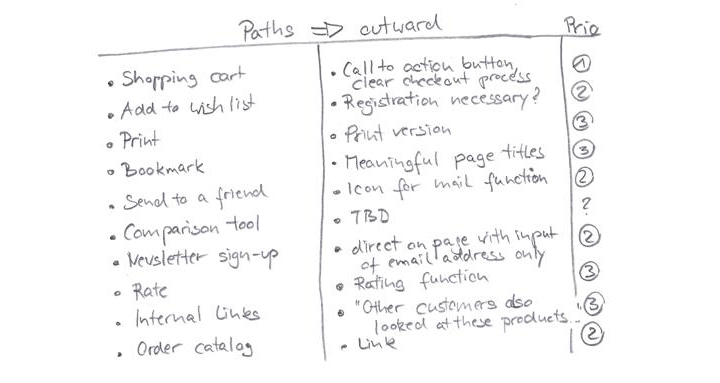 Paths ⇒ outward Prio
• Shopping cart
• Add to wish list
• Print
• Bookmark
• Send to a friend
• Comparison tool
• Newsletter sign-up
• Rate
• Internal Links
• Order catalog
• Call to action button,
clear checkout process
• Registration necessary?
• Print version
• Meaningful page titles
• Icon for mail function
• TBD
• direct on page with input
of email address only
• Rating function
• "Other customers also
looked at these products..."
• Link
1
2
3
3
2
?
2
3
3
2